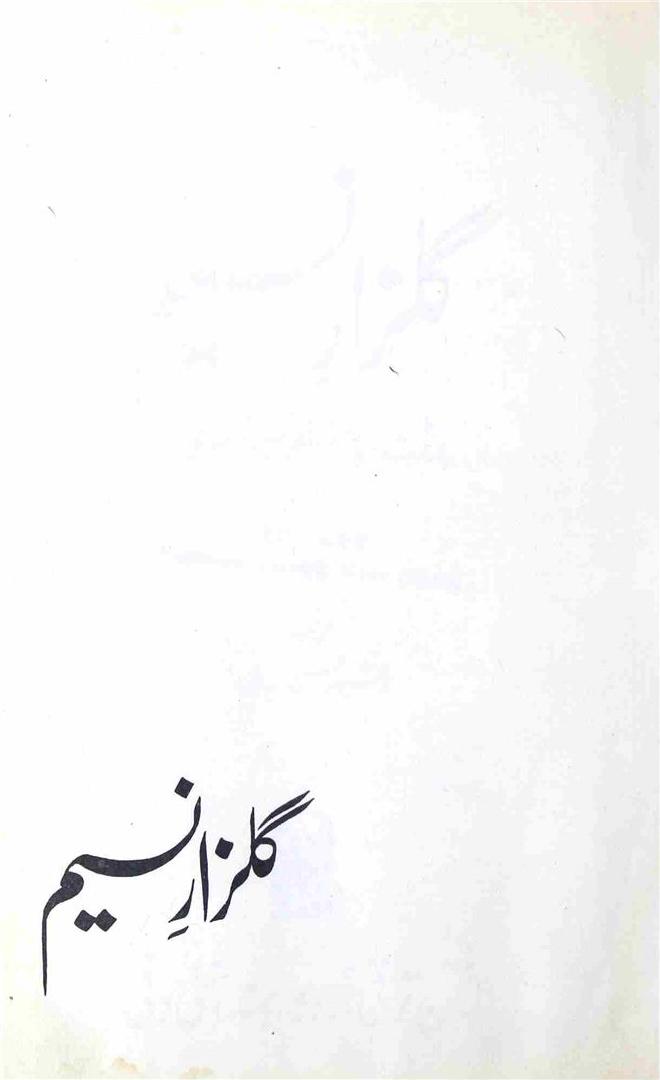 گلزارِ نسیم